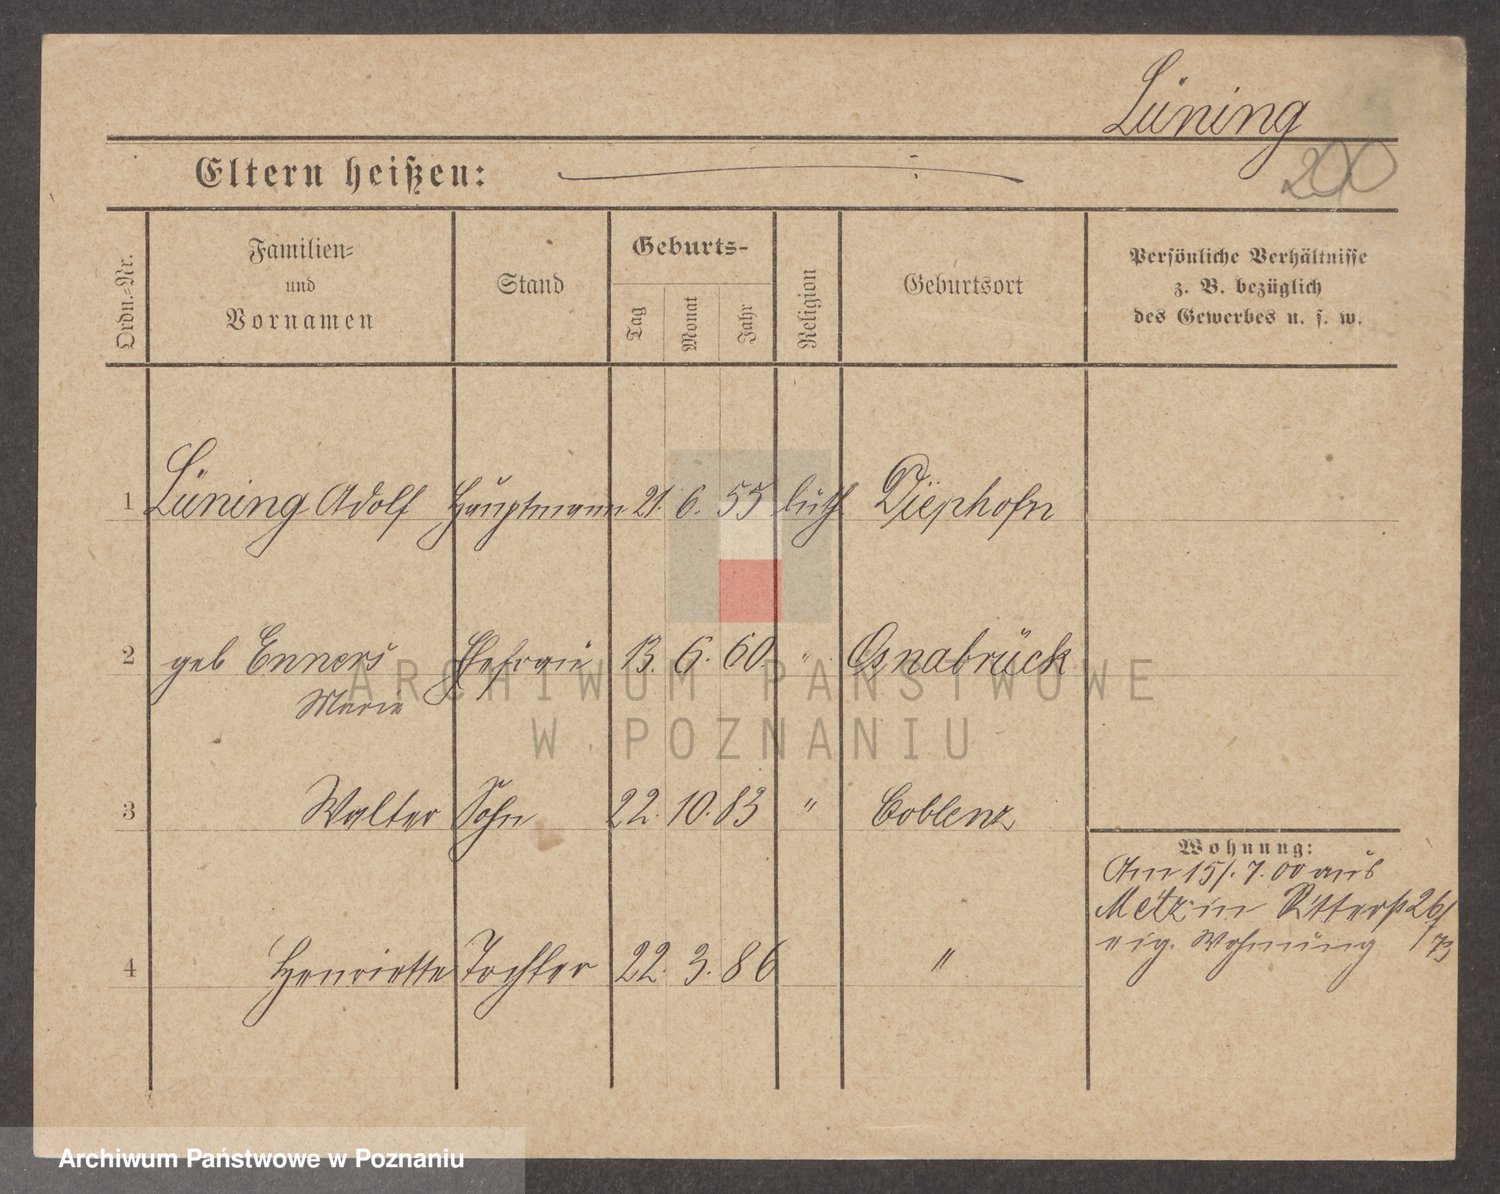 Lüning
200
Eltern heißen:
Ordn.-Nr.
Familien-
und
Vornamen
Stand
Geburts-
Tag
Monat
Jahr
Religion
Geburtsort
Persönliche Verhältnisse
z. B. bezüglich
des Gewerbes u. s. w.
1 Lüning Adolf Hauptmann 21. 6. 55 luth Diepholz
2 geb Enners Ehefrau 13. 6. 60 " Osnabrück
Marie
3 Walter Sohn 22. 10. 83 " Coblenz
4 Henriette Tochter 22. 3. 86 "
Wohnung:
Am 15/. 7. 00 aus
Metz in Ritterst 26/
eig. Wohnung / 73
ARCHIWUM PAŃSTWOWE
W POZNANIU
Archiwum Państwowe w Poznaniu